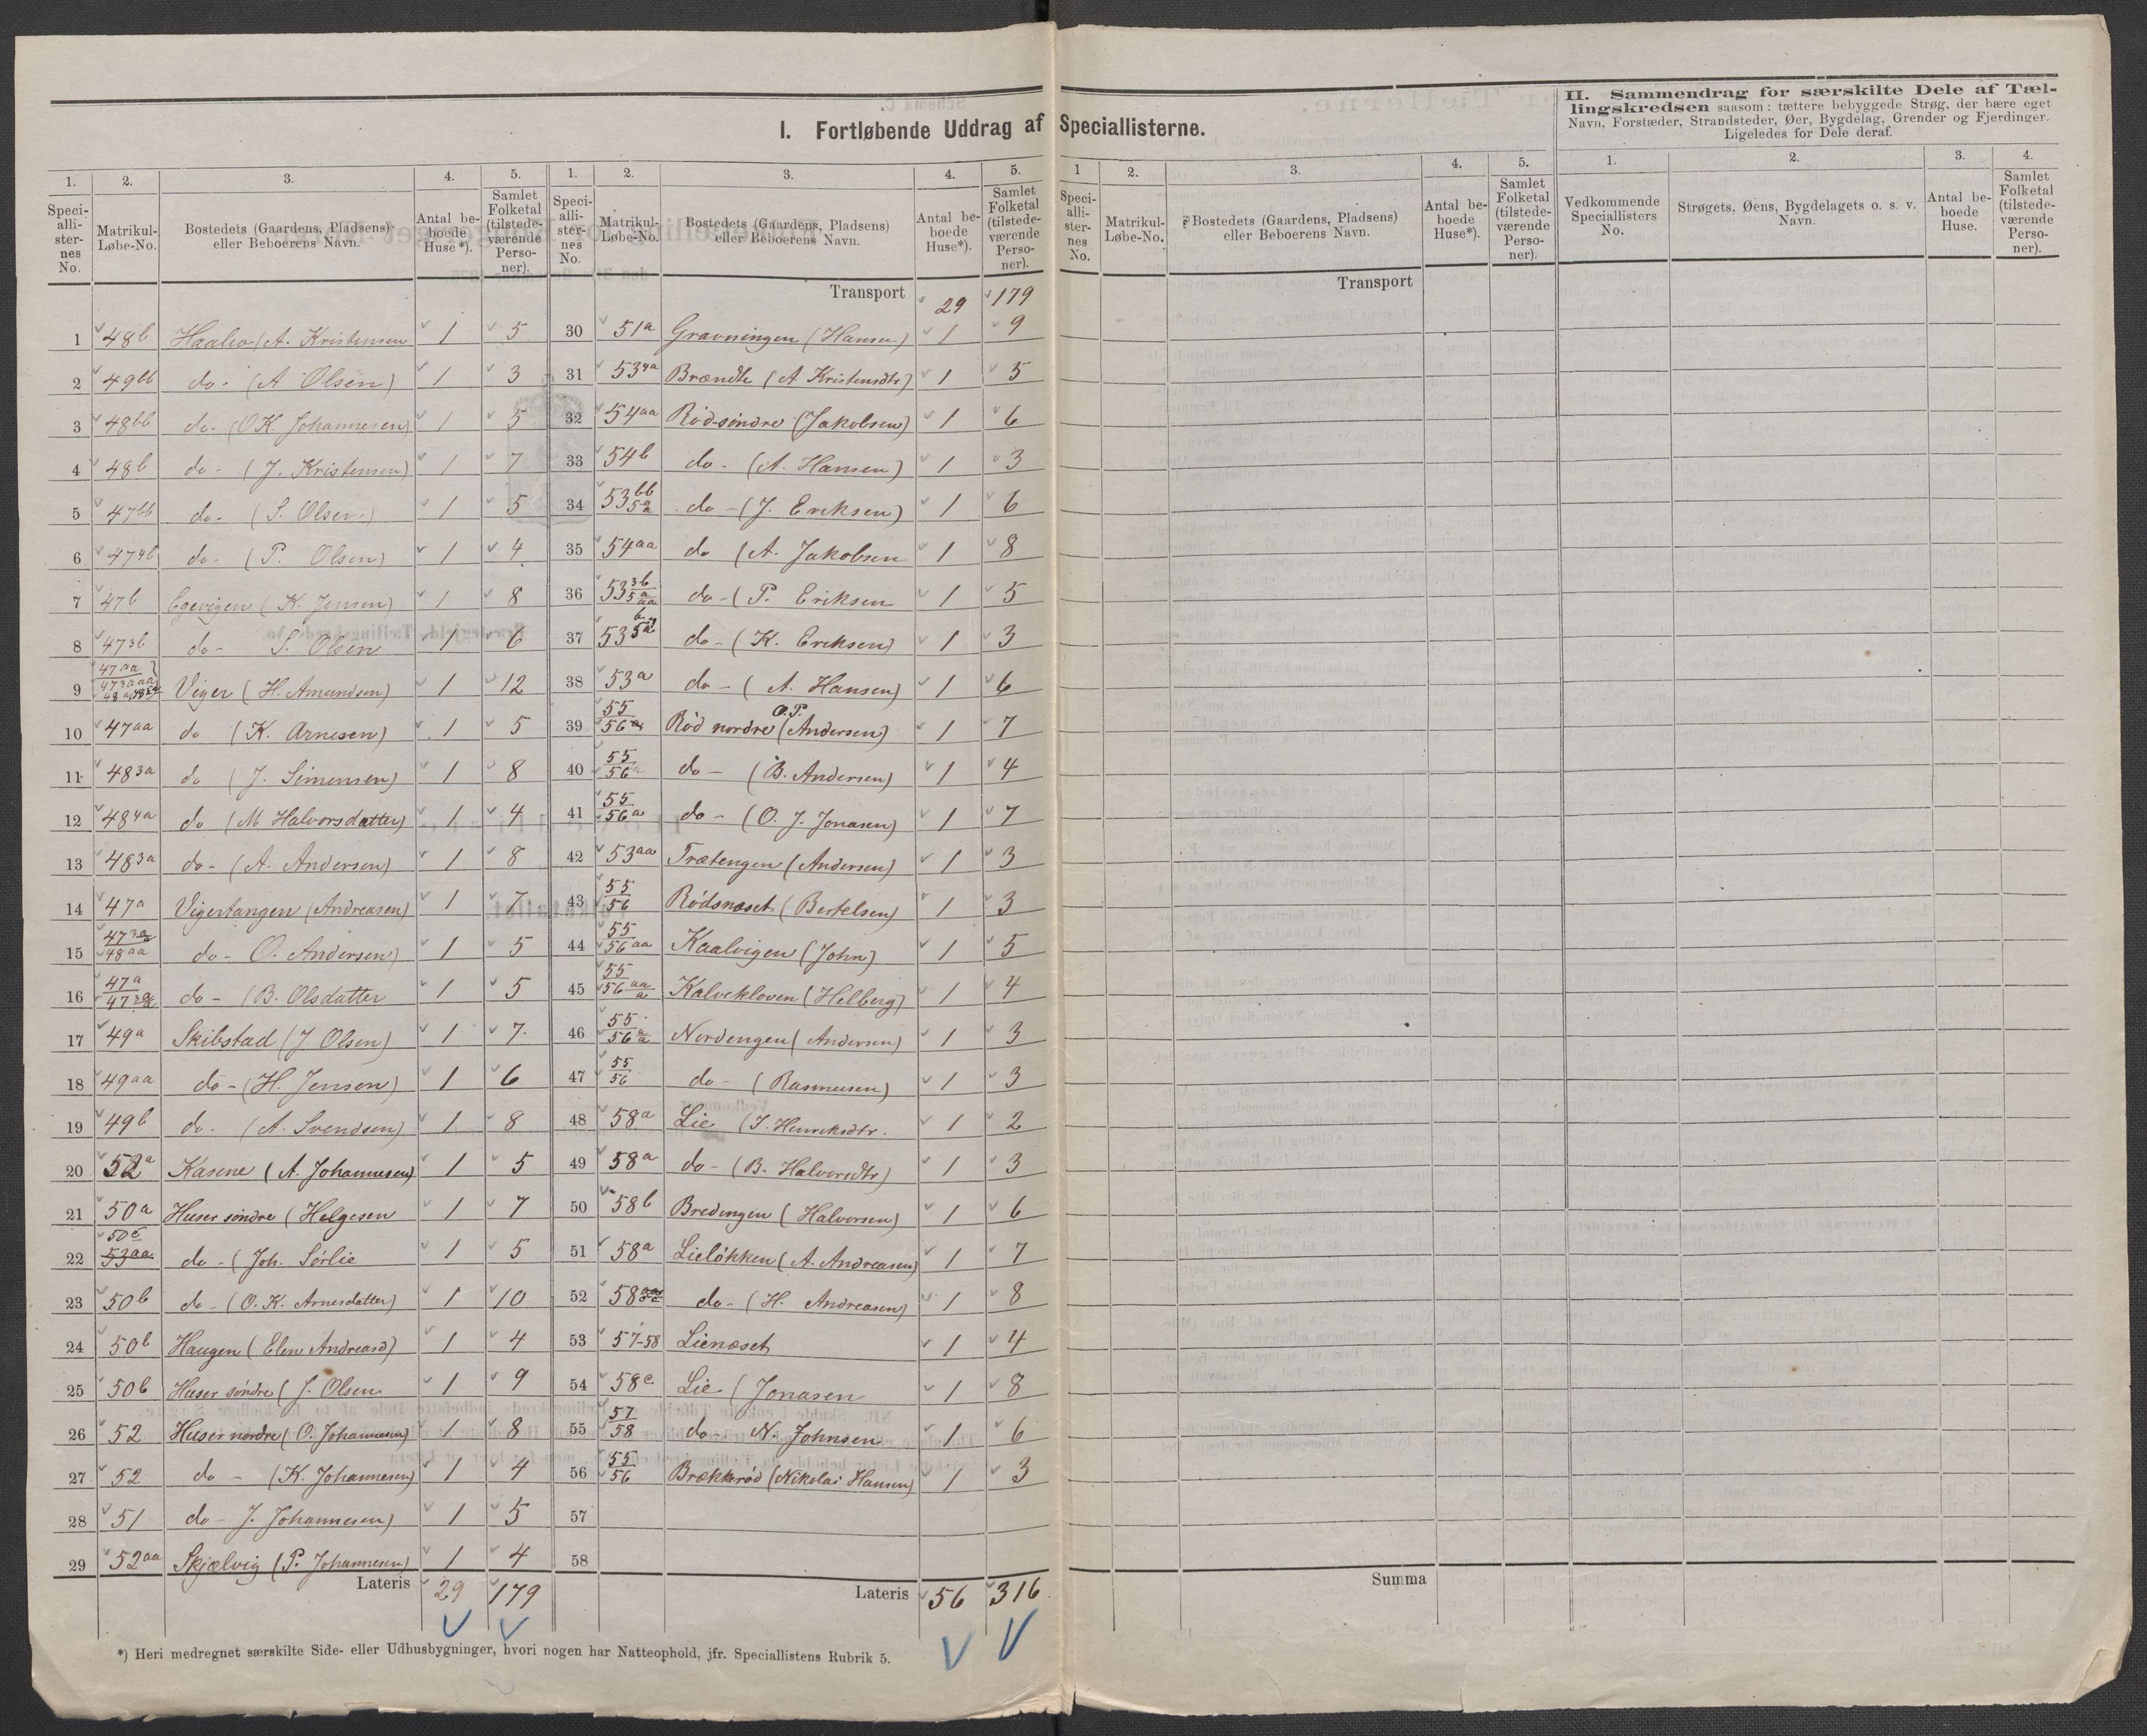 I. Fortløbende Uddrag af Speciallisterne.
1. 2. 3. 4. 5.
Speciallisternes No. Matrikul-Løbe-No. Bostedets (Gaardens, Pladsens) eller Beboerens Navn. Antal beboede Huse*). Samlet Folketal (tilstedeværende Personer).
1 48b Haaleo (A. Kristensen 1 5
2 49bb do. (A Olsen) 1 3
3 48bb do. (O K Johannesen) 1 5
4 48b do. (J. Kristensen) 1 7
5 47bb do. (S. Olsen) 1 5
6 474b do. (P. Olsen) 1 4
7 47b Egevigen (K. Jensen) 1 8
8 473b do - S. Olsen 1 6
9 47aa Viger (H. Amundsen) 1 12
10 47aa do (K. Arnesen) 1 5
11 483a do (J. Simensen) 1 8
12 484a do (M Halvorsdatter) 1 4
13 483a do - (A. Andersen) 1 8
14 47a Vigertangen (Andreasen) 1 7
15 48aa do - O. Andersen) 1 5
16 47a do - (B. Olsdatter 1 5
17 49a Skibstad (J Olsen) 1 7
18 49aa do - (H. Jensen) 1 6
19 49b do. (A. Svendsen) 1 8
20 52a Kasene (A. Johannesen) 1 5
21 50a Huser søndre (Helgesen 1 7
22 50c 53aa do - (Joh. Sørlie 1 5
23 50b do - (O. K. Arnesdatter) 1 10
24 50b Haugen (Elen Andreasd) 1 4
25 50b Huser søndre (J. Olsen 1 9
26 52 Huser nordre (O. Johannesen) 1 8
27 52 do - (K. Johannesen) 1 4
28 51 do - J. Johannesen) 1 5
29 52aa Skjælvig (P. Johannesen) 1 4
Lateris 29 179
1. 2. 3. 4. 5.
Speciallisternes No. Matrikul-Løbe-No. Bostedets (Gaardens, Pladsens) eller Beboerens Navn. Antal beboede Huse*). Samlet Folketal (tilstedeværende Personer).
Transport 29 179
30 51a Gravningen (Hansen) 1 9
31 534a Brændte (A Kristensdtr) 1 5
32 54aa Rød søndre (Jakobsen) 1 6
33 54b do. (A. Hansen) 1 3
34 53bb 5a do - (J. Eriksen) 1 6
35 54aa do (A. Jakobsen 1 8
36 533b do - (P. Eriksen 1 5
37 53 do - (K. Eriksen) 1 3
38 53a do - (A. Hansen) 1 6
39 55 56a Rød nordre (O. P. Andersen) 1 7
40 55 56a do - (B. Andersen) 1 4
41 55 56a do - (O. J. Jonasen) 1 7
42 53aa Trætengen (Andersen) 1 3
43 55 56 Rødsnæset (Bertelsen) 1 3
44 55 56aa Kaalvigen (John) 1 5
45 55 56aa Kalvekloven (Helberg) 1 4
46 55 56a Nordengen (Andersen) 1 3
47 55 56 do - (Rasmusen) 1 3
48 58a Lie (I. Henriksdtr. 1 2
49 58a do - (B. Halvorsdtr) 1 3
50 58b Bredengen (Halvorsen) 1 6
51 58a Lieløkken (A. Andreasen) 1 7
52 58 do - (H. Andreasen) 1 8
53 57-58 Lienæset 1 4
54 58c Lie (Jonasen 1 8
55 57 58 do - N. Johnsen 1 6
56 55 56 Brækkerød (Nikolai Hansen) 1 3
57
58
Lateris 56 316
*) Heri medregnet særskilte Side- eller Udhusbygninger, hvori nogen har Natteophold, jfr. Speciallistens Rubrik 5.
1 2. 3. 4. 5.
Speciallisternes No. Matrikul-Løbe-No. Bostedets (Gaardens, Pladsens) eller Beboerens Navn. Antal beboede Huse*). Samlet Folketal (tilstedeværende Personer).
Transport
Summa
II. Sammendrag for særskilte Dele af Tæl-
lingskredsen saasom: tættere bebyggede Strøg, der bære eget
Navn, Forstæder, Strandsteder, Øer, Bygdelag, Grender og Fjerdinger.
Ligeledes for Dele deraf.
1. 2. 3. 4.
Vedkommende Speciallisters No. Strøgets, Øens, Bygdelagets o. s. v. Navn. Antal beboede Huse. Samlet Folketal (tilstedeværende Personer).